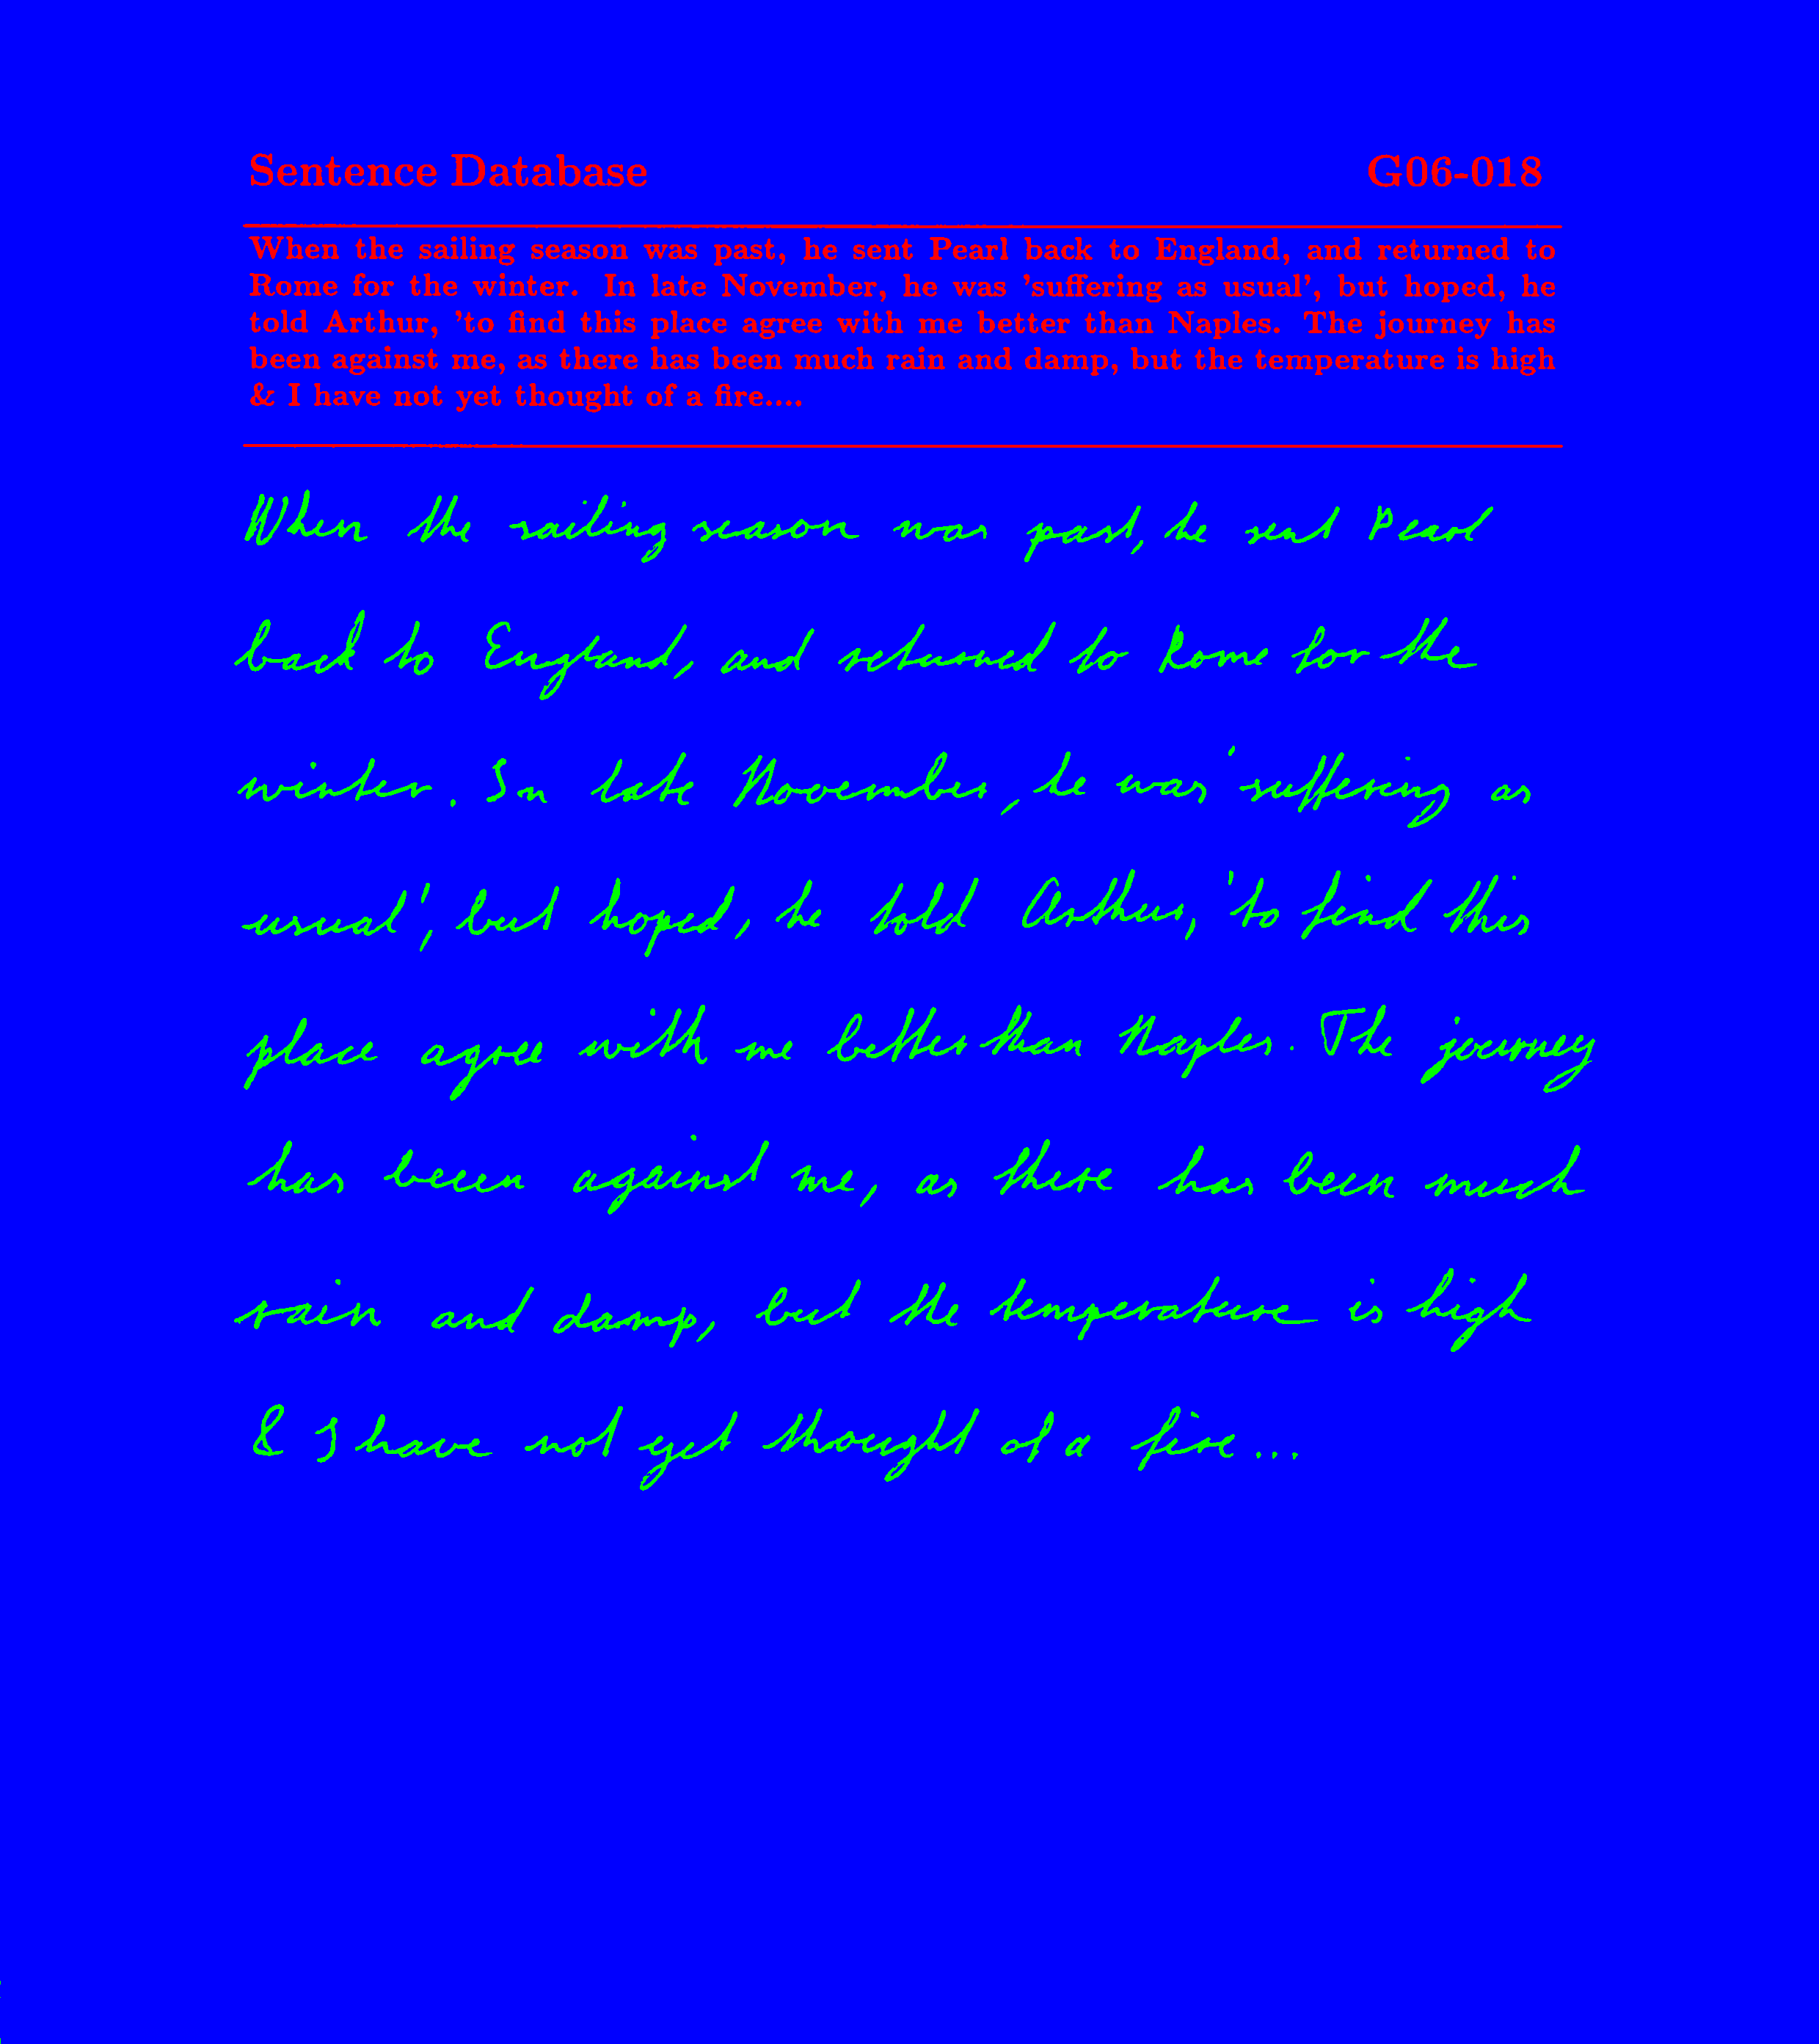 Sentence Database G06-018
When the sailing season was past, he sent Pearl back to England, and returned to
Rome for the winter. In late November, he was 'suffering as usual', but hoped, he
told Arthur, 'to find this place agree with me better than Naples. The journey has
been against me, as there has been much rain and damp, but the temperature is high
& I have not yet thought of a fire....
When the sailing season was past, he sent Pearl
back to England, and returned to Rome for the
winter. In late November, he was 'suffering as
usual', but hoped, he told Arthur, 'to find this
place agree with me better than Naples. The journey
has been against me, as there has been much
rain and damp, but the temperature is high
& I have not yet thought of a fire...